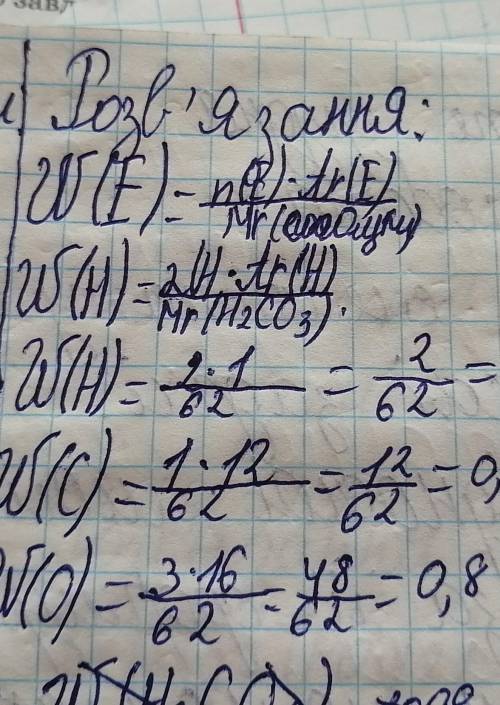 Розв'язання:
W(E) = n(E)·Ar(E) / Mr(сполуки)
W(H) = 2(H·Ar(H) / Mr(H2CO3).
W(H) = 2·1 / 62 = 2 / 62 =
W(C) = 1·12 / 62 = 12 / 62 = 0,
W(O) = 3·16 / 62 = 48 / 62 = 0,8